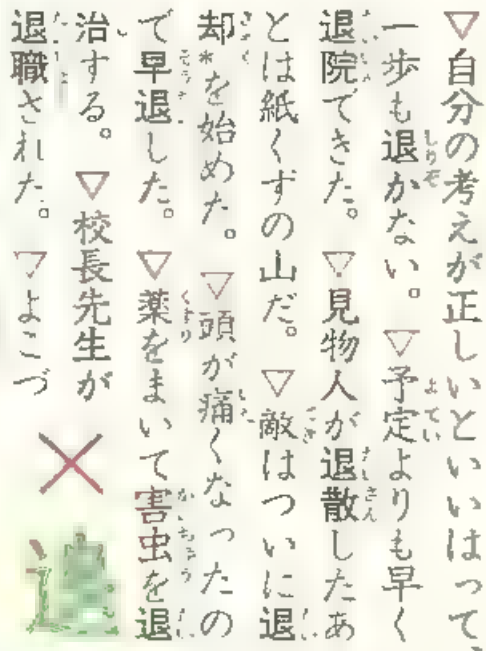 ▽自分の考えが正しいといいはって、
一歩も退かない。▽予定よりも早く
退院できた。▽見物人が退散したあ
とは紙くずの山だ。▽敵はついに退
却*を始めた。▽頭が痛くなったの
で早退した。▽薬をまいて害虫を退
治する。▽校長先生が
退職された。▽よこづ